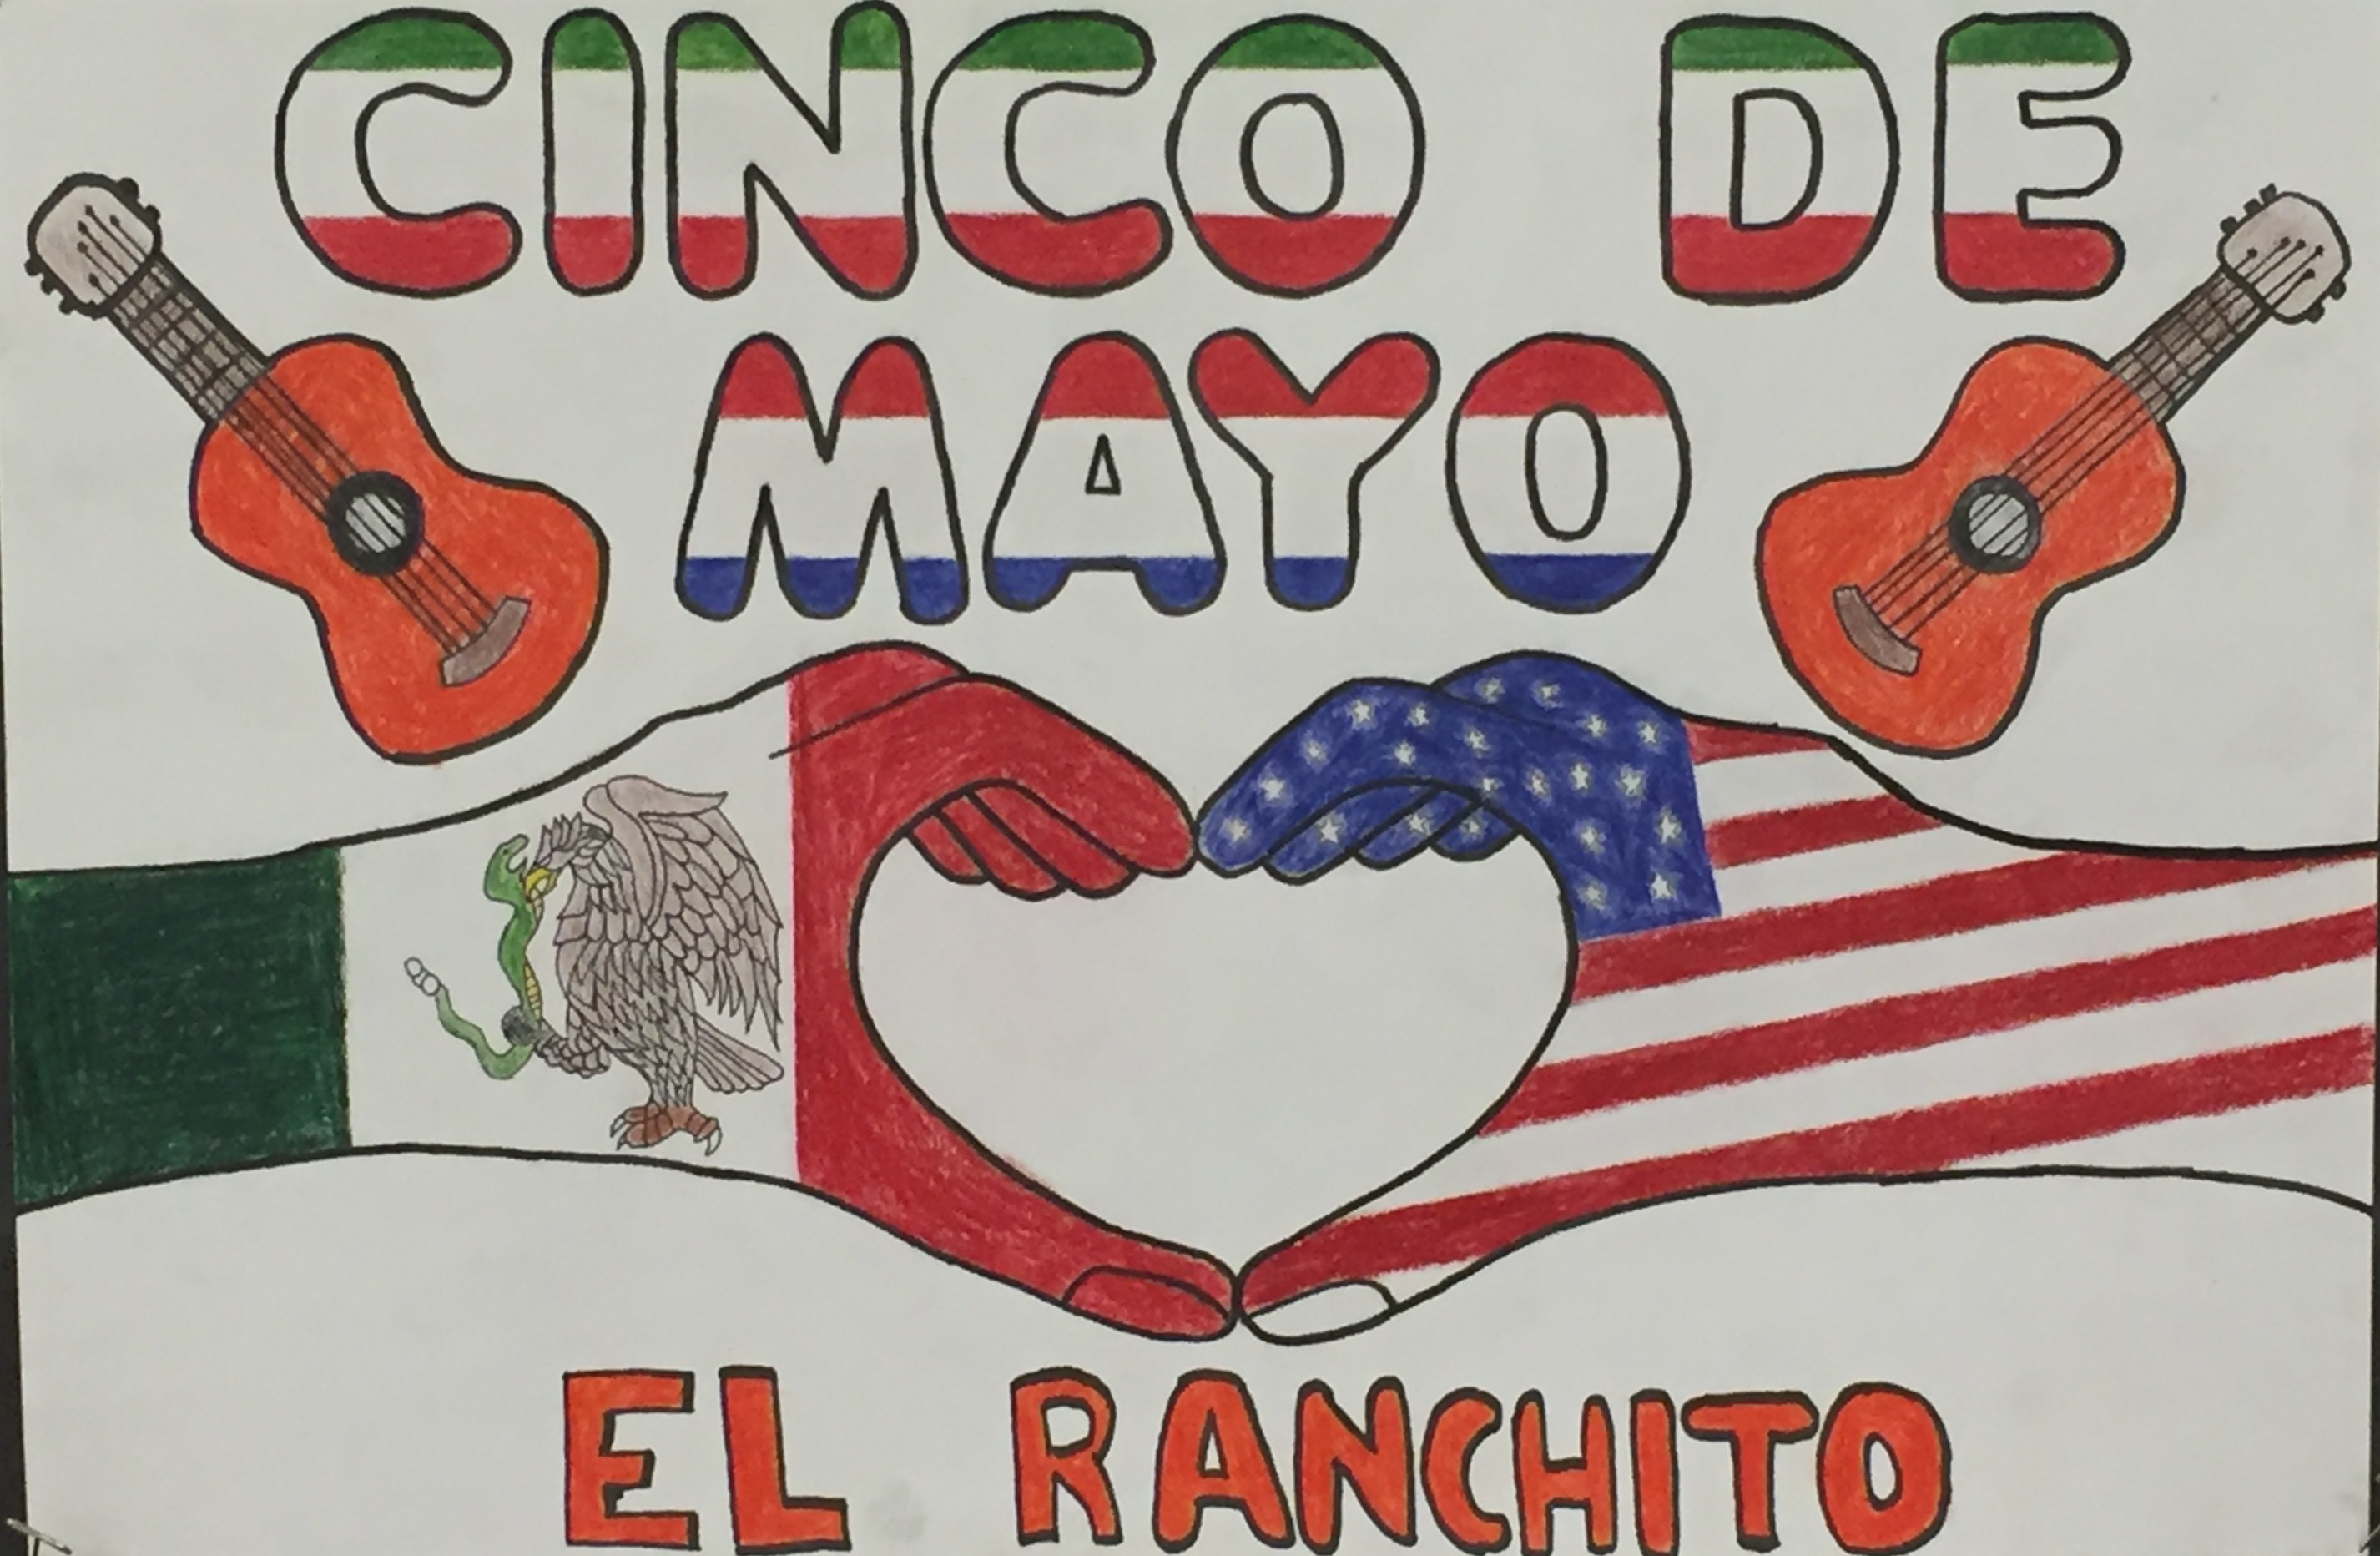 CINCO DE
MAYO
EL RANCHITO